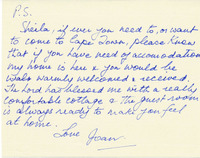 P.S.
Sheila, if ever you need to, or want
to come to Cape Town, please know
that if you have need of accomodation
my home is here & you would be
also warmly welcomed & received.
The Lord has blessed me with a really
comfortable cottage & the guest room
is always ready to make you feel
at home.
Love Joan